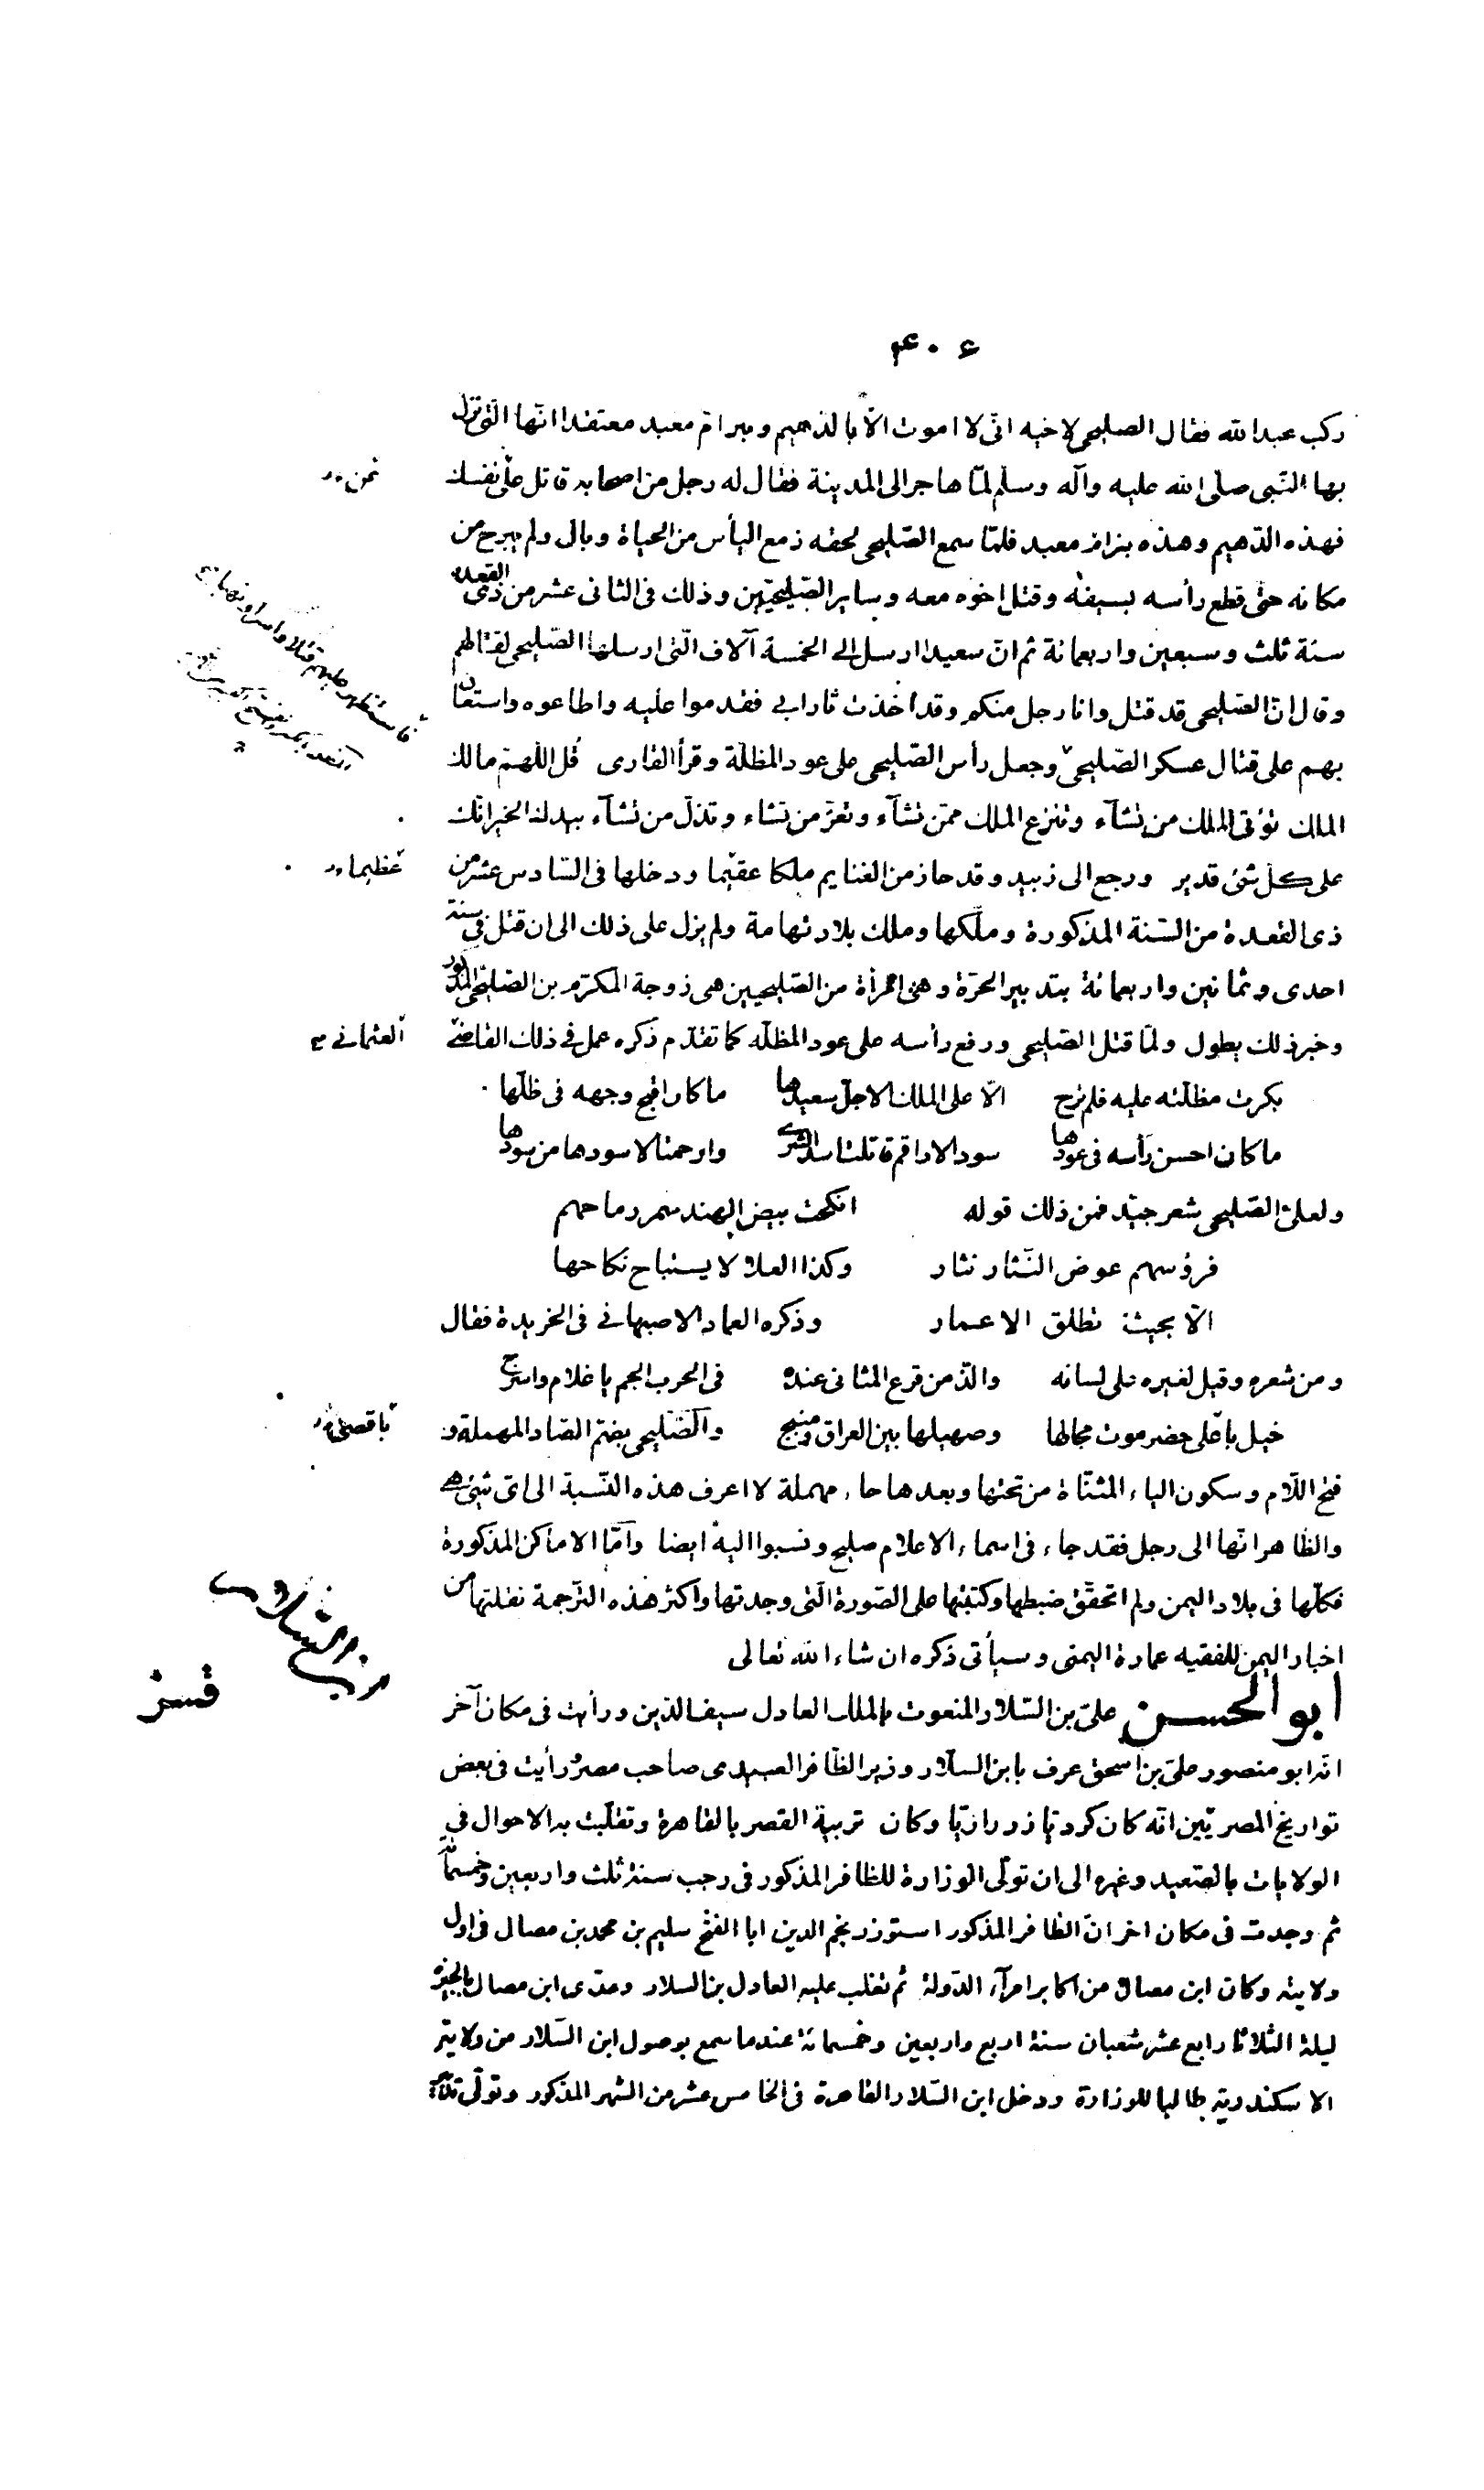 ۴۰۶
ركب عبدالله فقال الصليحى لاخيه انى لا اموت الّا بالدهيم وبيرامّ معبد معتقدا انّها الّتى نزل
بها النّبى صلى الله عليه وآله وسلّم لمّا هاجر الى المدينة فقال له رجل من اصحابه قاتل على نفسك
فهذه الدّهيم وهذه بئر امّ معبد فلمّا سمع الصّليحى لحقه زمع اليأس من الحياة وبال ولم يبرح من
مكانه حتّى قطع رأسه بسيفه وقتل اخوه معه وساير الصّليحيّين وذلك فى الثانى عشر من ذى القعدة
سنة ثلث وسبعين واربعمائة ثم انّ سعيدا ارسل الى الخمسة آلاف الّتى ارسلها الصّليحى لقتالهم
وقال انّ الصّليحى قد قتل وانا رجل منكم وقد اخذت ثار ابى فقدموا عليه واطاعوه واستعان
بهم على قتال عسكر الصّليحى وجعل رأس الصّليحى على عود المظلّة وقرأ القارى قل اللّهمّ مالك
الملك تؤتى الملك من تشآء وتنزع الملك ممّن تشآء وتعزّ من تشاء وتذلّ من تشآء بيدك الخير انّك
على كل شئ قدير ورجع الى زبيد وقد حاز من الغنايم ملكا عقيما ودخلها فى السّادس عشر من
ذى القعدة من السّنة المذكورة وملكها وملك بلاد تهامة ولم يزل على ذلك الى ان قتل فى سنة
احدى وثمانين واربعمائة بتدبير الحرّة وهى امرأة من الصّليحيين هى زوجة المكرّم بن الصّليحى المذكور
وخبر ذلك يطول ولمّا قتل الصّليحى ورفع رأسه على عود المظلّه كما تقدّم ذكره عمل فى ذلك القاضى
بكرت مظلّته عليه فلم ترح الّا على الملك الاجلّ سعيدها ما كان اقبح وجهه فى ظلّها
ما كان احسن رأسه فى عودها سود الاراقم قاتلت اسد الشرى وارحمتا لاسودها من سودها
ولعلىّ الصّليحى شعر جيّد فمن ذلك قوله انكحت بيض الهند سمر رماحهم
فرؤسهم عوض النّثار نثار وكذا العلا لا يستباح نكاحها
الّا بحيث تطلق الاعمار وذكره العماد الاصبهانى فى الخريدة فقال
ومن شعره وقيل لغيره على لسانه والذّ من قرع المثانى عنده فى الحرب الجم يا غلام واسرج
خيل باعلى حضرموت مجالها وصهيلها بين العراق ومنبج والصّليحى بضمّ الصّاد المهملة و
فتح اللّام وسكون الياء المثنّاة من تحتها وبعدها حاء مهملة لا اعرف هذه النّسبة الى اىّ شئ هى
والظّاهر انّها الى رجل فقد جاء فى اسماء الاعلام صليح ونسبوا اليه ايضا وامّا الاماكن المذكورة
فكلّها فى بلاد اليمن ولم اتحقّق ضبطها وكتبتها على الصّورة الّتى وجدتها واكثر هذه التّرجمة نقلتها من
اخبار اليمن للفقيه عمارة اليمنى وسيأتى ذكره ان شاء الله تعالى
ابو الحسن علىّ بن السّلار المنعوت بالملك العادل سيف الدّين ورأيت فى مكان آخر
انّه ابو منصور علىّ بن اسحق عرف بابن السلّار وزير الظّافر العبيدى صاحب مصر رأيت فى بعض
تواريخ المصريّين انّه كان كرديّا زرزاريّا وكان تربية القصر بالقاهرة وتقلّبت به الاحوال فى
الولايات بالصّعيد وغيره الى ان تولّى الوزارة للظافر المذكور فى رجب سنة ثلث واربعين وخمسمائة
ثم وجدت فى مكان اخر انّ الظّافر المذكور استوزر نجم الدين ابا الفتح سليم بن محمد بن مصال فى اول
ولايته وكان ابن مصال من اكابر امرآء الدّولة ثم تغلب عليه العادل بن السلار وعدّى ابن مصال بالجيزة
ليلة الثّلاثا رابع عشر شعبان سنة اربع واربعين وخمسمائة عندما سمع بوصول ابن السّلار من ولاية
الاسكندرية طالبا للوزارة ودخل ابن السّلار القاهرة فى الخامس عشر من الشهر المذكور وتولّى
فمن
عظيما
العثمانى
باقصى
ابن السّلار